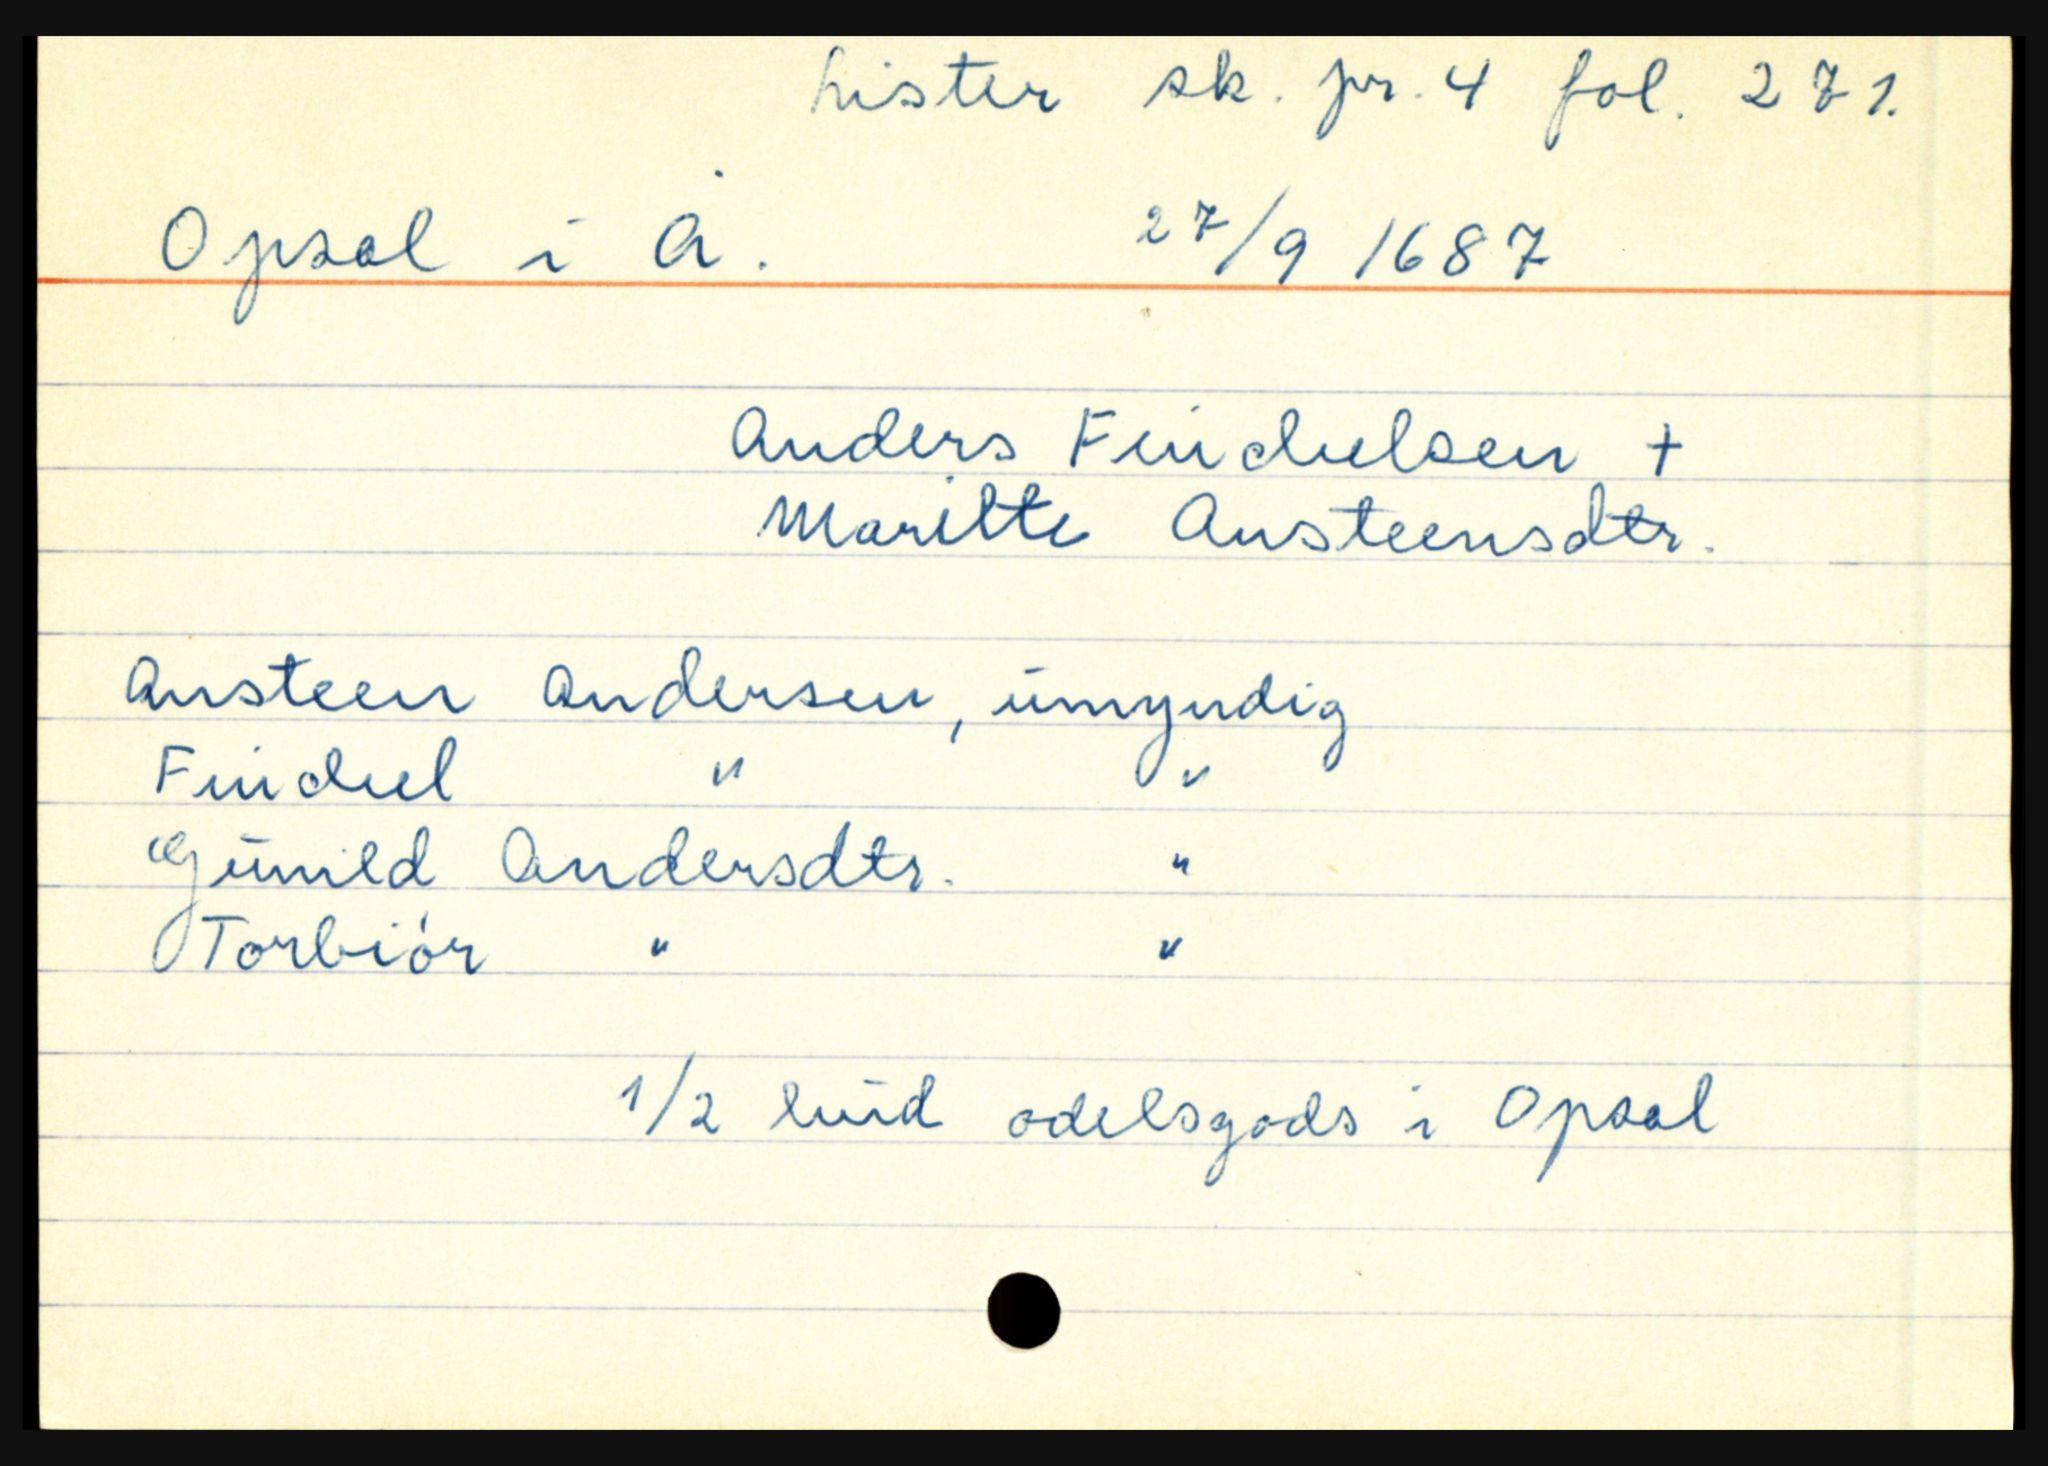 Lister sk. pr. 4 fol. 271.
Opsal i Å. 27/9 1687
Anders Finchielsen +
Maritte Austeensdtr.
Austeen Andersen, umyndig
Finchiel " "
Gunild Andersdtr. "
Torbiør " "
1/2 hud odelsgods i Opsal